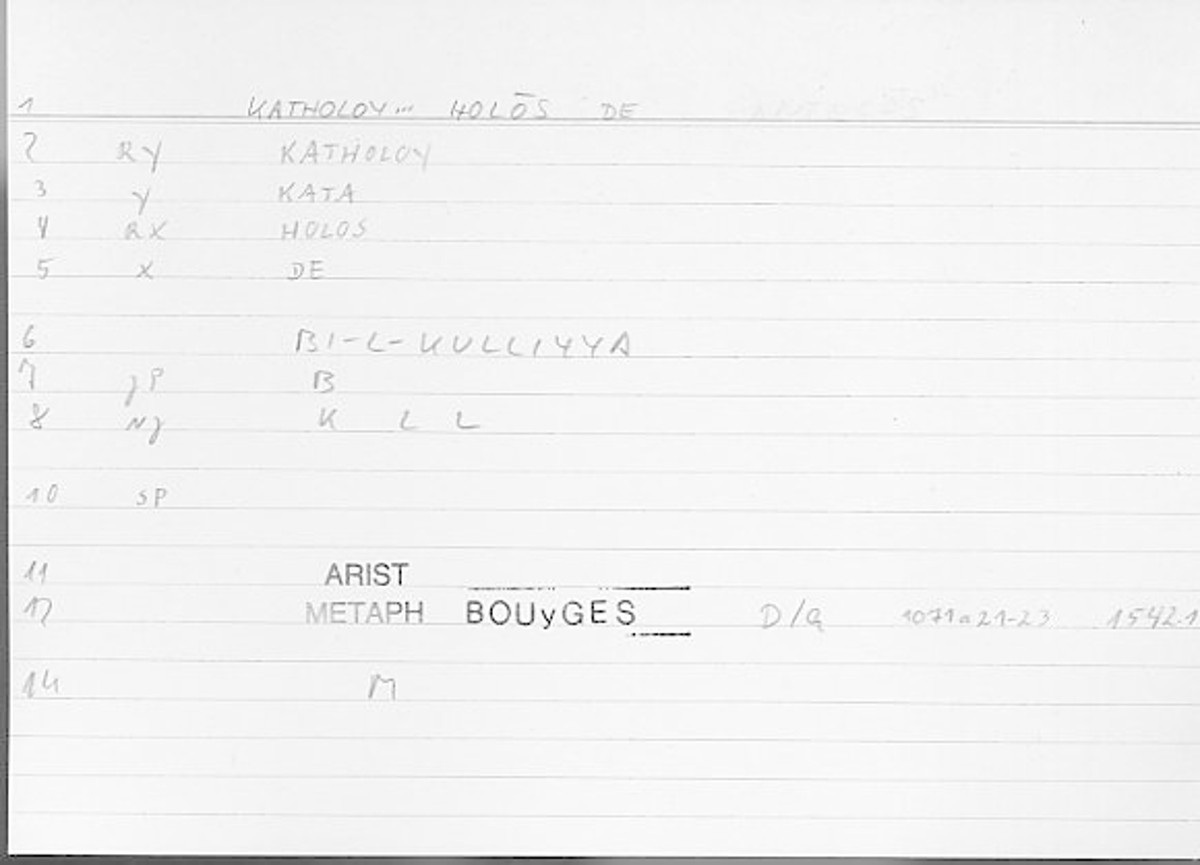 1 KATHOLOY... HOLŌS DE
2 RY KATHOLOY
3 Y KATA
4 RX HOLOS
5 X DE
6 BI-L-KULLIYYA
7 JP B
8 NJ K L L
10 SP
11 ARIST
12 METAPH BOUyGES D/Q 1071a21-23 1542.1
14 M